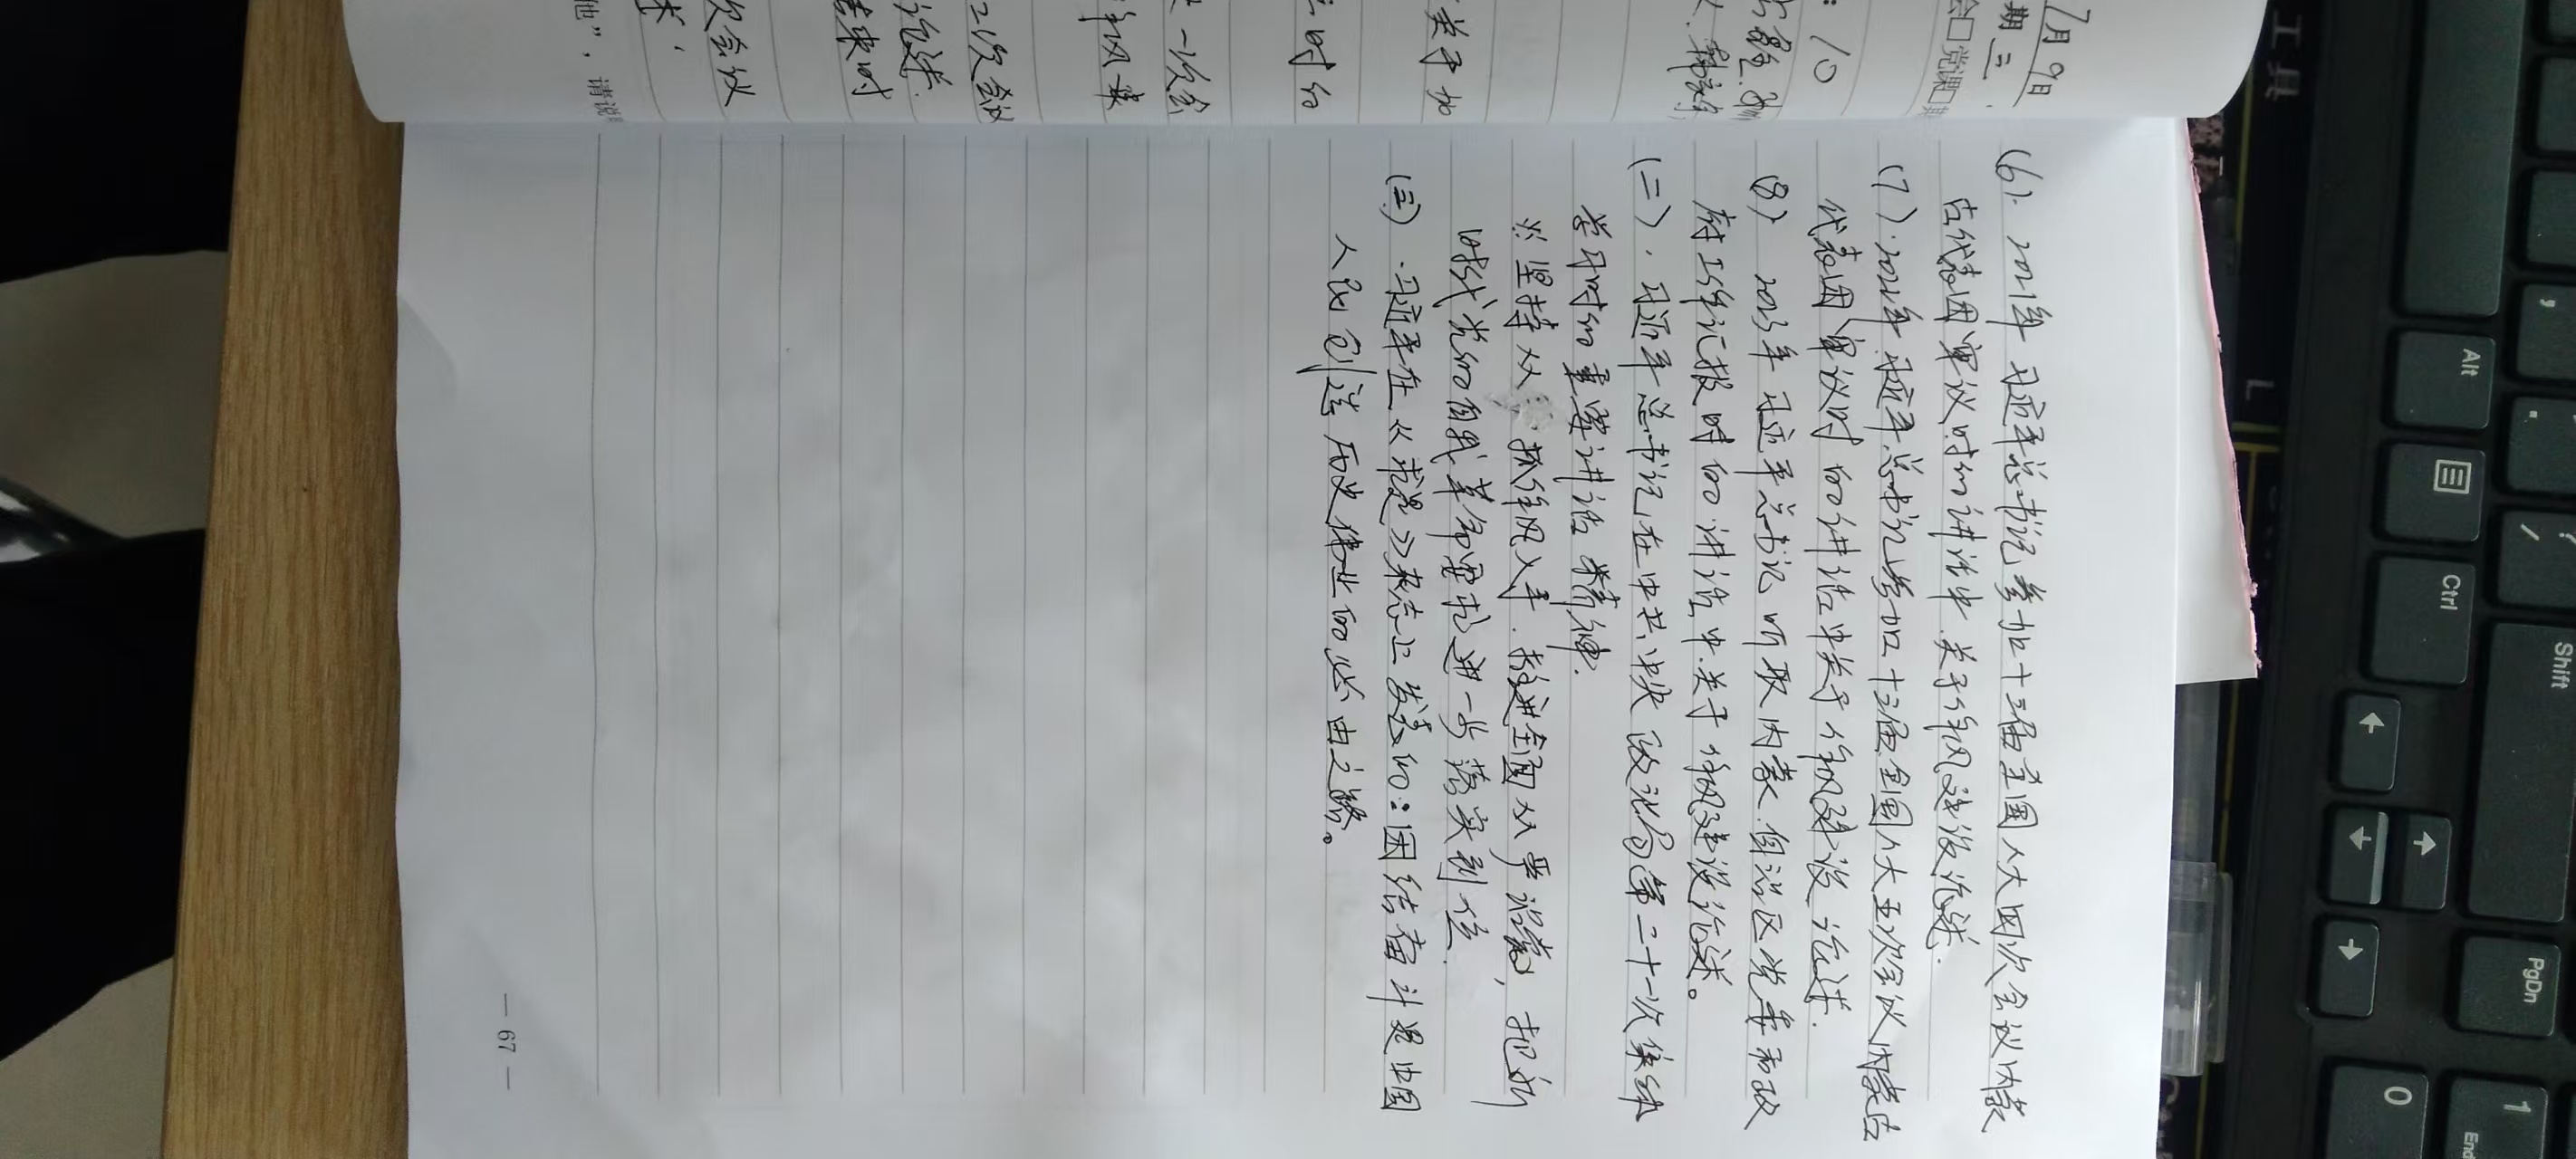 7月9日
期三
会□党课□
:10
关于加
三时的
一次会
2次会议
论述.
结束时
次会议
他”,请说
(6). 2021年 习近平总书记参加十三届全国人大四次会议内蒙
古代表团审议时的讲话中 关于作风建设论述.
(7).2022年 习近平总书记参加十三届全国人大五次会议内蒙古
代表团审议时 的讲话中关于作风建设 论述.
(8) 2023年 习近平总书记 听取内蒙古自治区党委和政
府工作汇报时的讲话中关于作风建设论述。
(二). 习近平总书记在中共中央政治局第二十一次集体
学习时的重要讲话 精神.
※ 坚持从 抓作风入手. 推进全面从严治党, 把新
时代党的自我革命要求进一步落实到位.
(三).习近平在《求是》杂志上发表的:团结奋斗是中国
人民创造 历史伟业的必由之路。
— 67 —
工具
Alt
Ctrl
Shift
PgDn
0
1
End